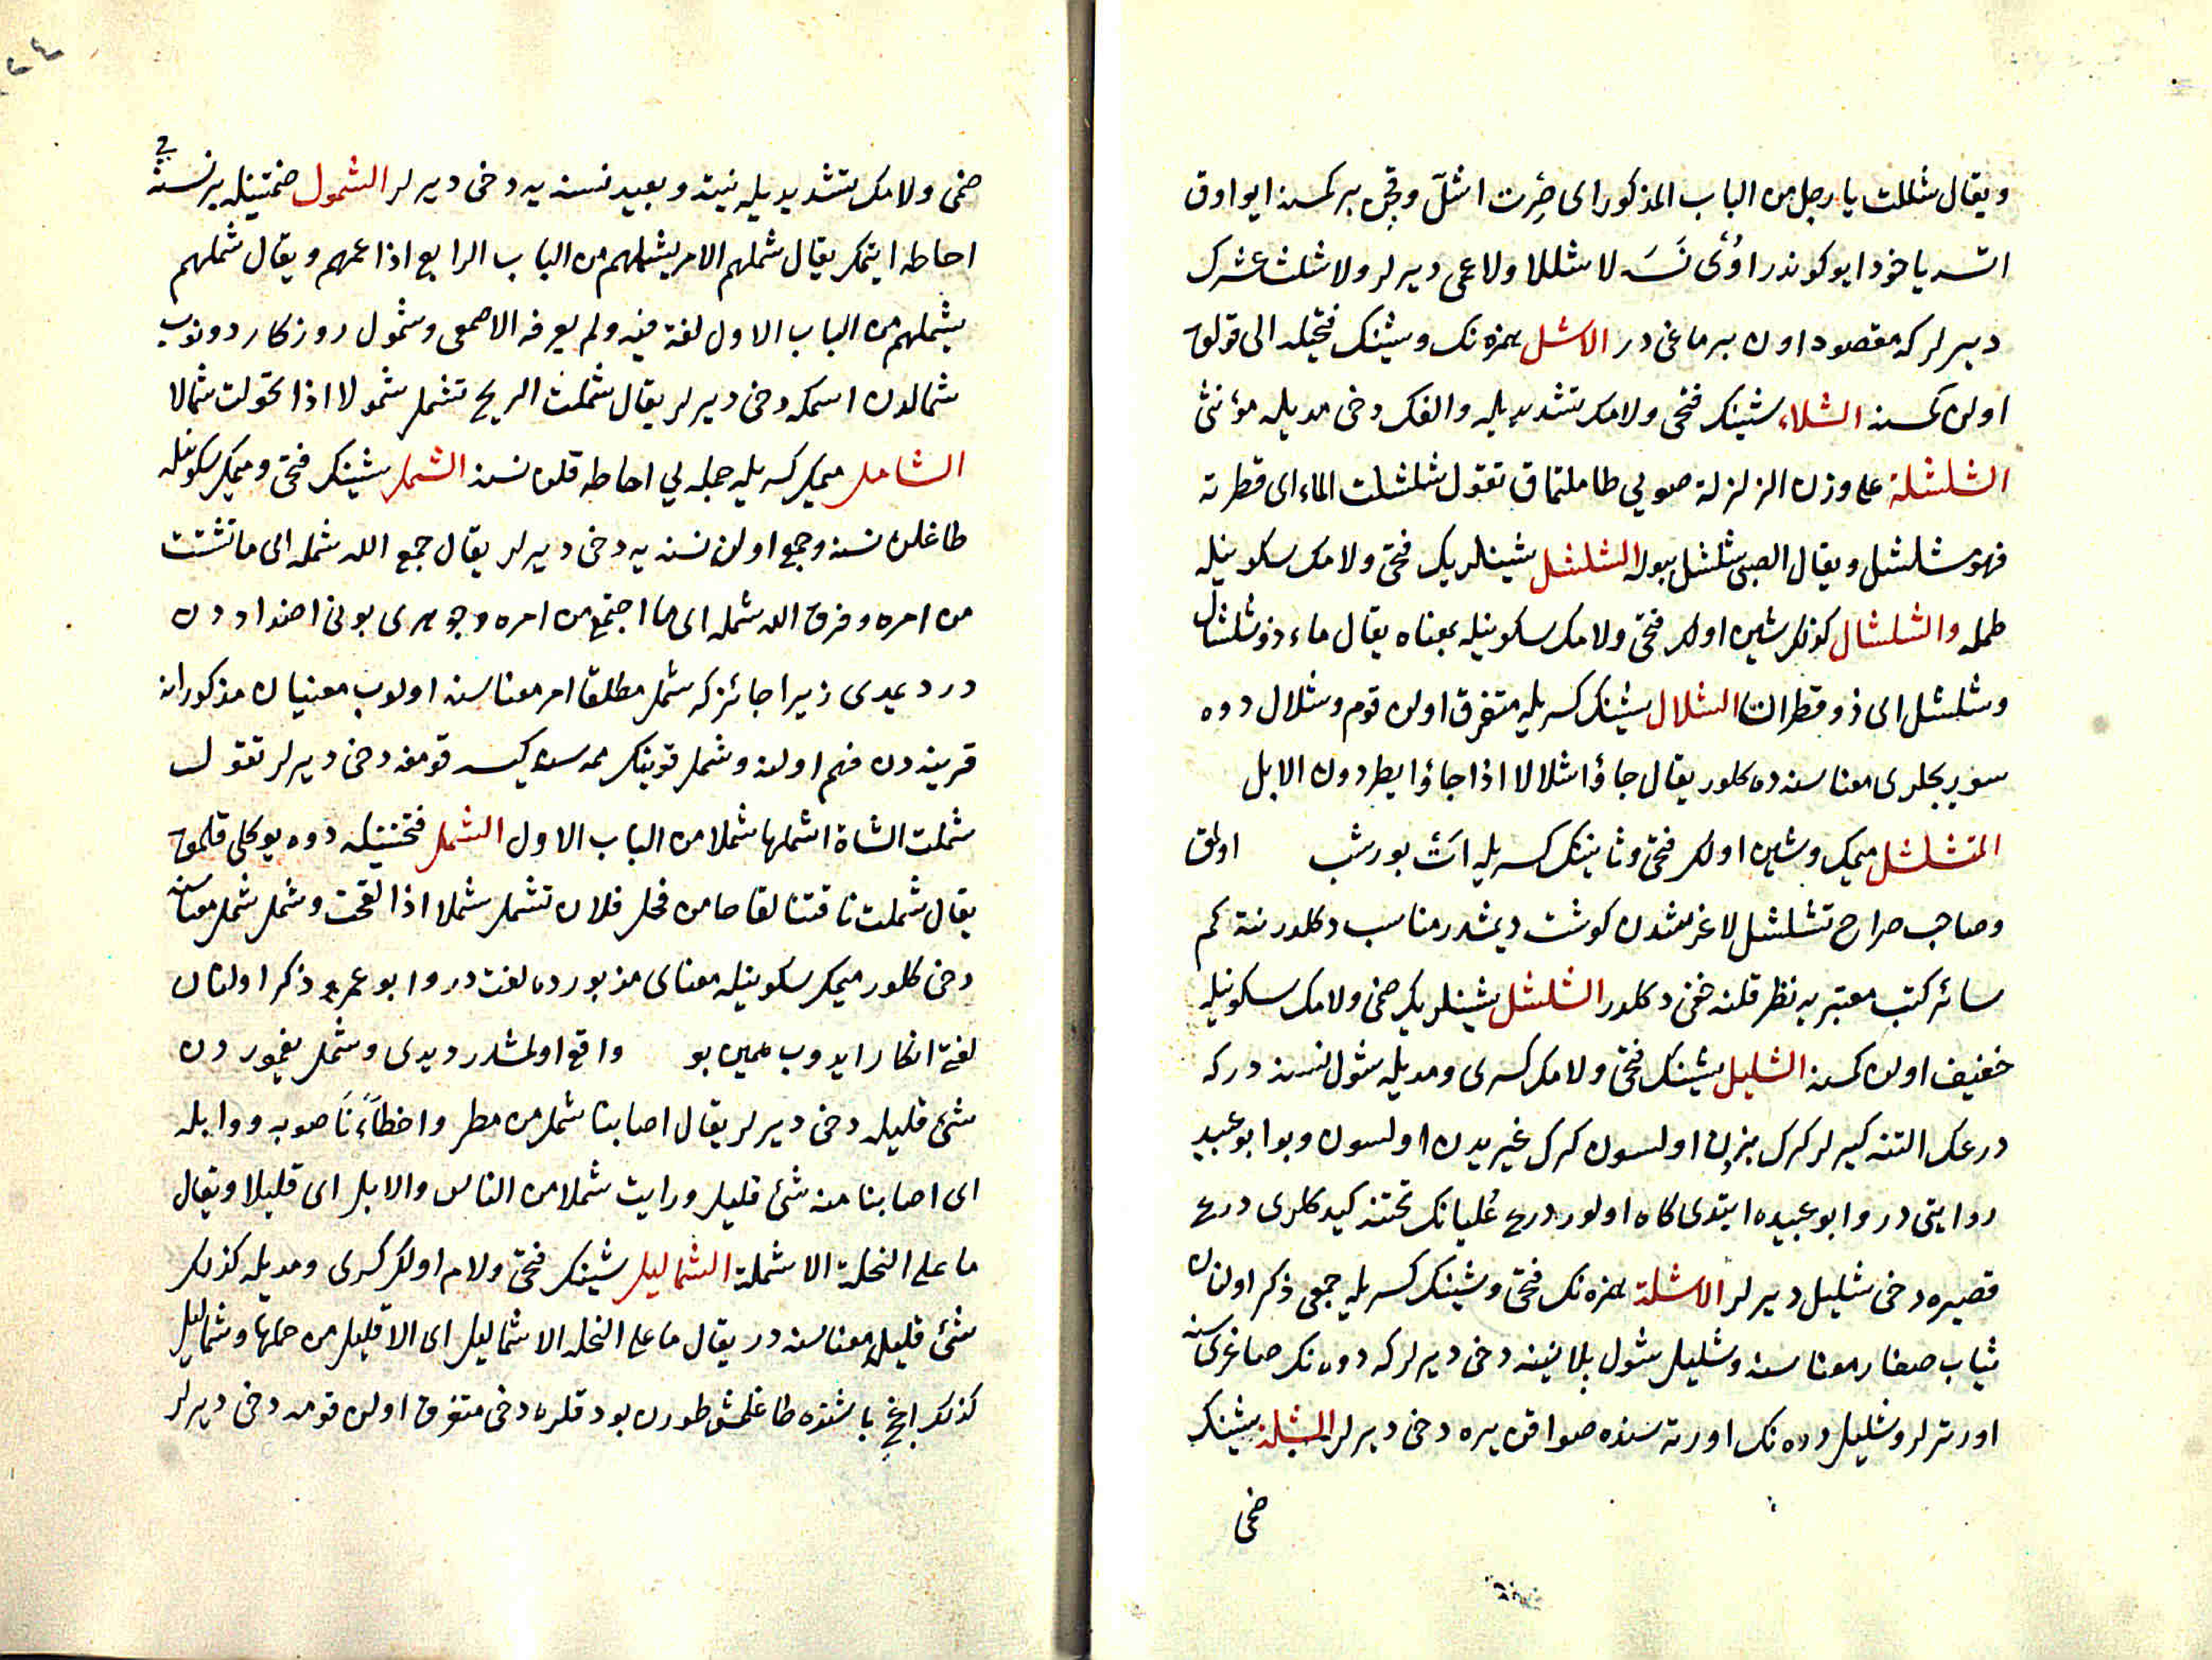 ويقال شللت يا رجل من الباب المذكور اى صرت اشلّ وقچن بر كمسنه ايو اوق
اتسه ياخود ايو كوندر اوُىٔ نَسَه لا شللا ولا عمى ديرلر ولا شلت عشرك
ديرلر كه مقصود اون برماغى در الاشل همزه نك وشينك فتحيله الى قولق
اولن كمسنه الشلاء شينك فتحى ولامك تشديديله والفك دخى مديله مؤنثى
الشلشلة على وزن الزلزلة صويى طاملتماق تقول شلشلت الماء اى قطرته
فهو شلشل ويقال الصبى شلشل ببوله الشلشل شينلريك فتحى ولامك سكونيله
طمله والشلشال كذلك شين اولك فتحى ولامك سكونيله بمعناه يقال ماء ذو شلشال
وشلشل اى ذو قطران الشلال شينك كسريله متفرق اولن قوم وشلال دوه
سوريجلرى معناسنه ده كلور يقال جاؤا شلالا اذا جاؤا يطردون الابل
المتشلشل ميمك وشين اولك فتحى وثانينك كسريله اتى بورشب اولمق
وصاحب صراح تشلشل لاغر شدن كوشت ديمشدر مناسب دكلدر نته كم
سائر كتب معتبريه نظر قلنه خفى دكلدر الشلشل شينلريك ضمى ولامك سكونيله
خفيف اولن كمسنه الشليل شينك فتحى ولامك كسرى ومديله شول نسنه دركه
درعك التنه كيرلر كرك بزدن اولسون كرك غيريدن اولسون وبو ابو عبيد
روايتى در وابو عبيده ايتدى كاه اولور درع عُليانك تحتنه كيدكلرى درع
قصيره دخى شليل ديرلر الاشلة همزه نك فتحى وشينك كسريله جمعى ذكر اولنان
ثياب صغار معناسنه وشليل شول پلاسنه دخى ديرلر كه دوه نك صاغرى سنه
اورترلر وشليل دوه نك اورته سنده صو اقن يره دخى ديرلر الشلة شينك
ضمى
ضمى ولامك تشديديله نيته وبعيد نسنه يه دخى ديرلر الشمول ضمتينله بر نسنه يى
احاطه ايتمك يقال شملهم الامر يشملهم من الباب الرابع اذا عمهم ويقال شملهم
يشملهم من الباب الاول لغة فيه ولم يعرفه الاصمعى وشمول روزكار دونوب
شمالدن اسمكه دخى ديرلر يقال شملت الريح تشمل شمولا اذا تحولت شمالا
الشامل ميمك كسريله جمله يى احاطه قلن نسنه الشمل شينك فتحى وميمك سكونيله
طاغلن نسنه وجمع اولن نسنه يه دخى ديرلر يقال جمع الله شمله اى ما تشتت
من امره وفرق الله شمله اى ما اجتمع من امره وجوهرى بونى اضداددن
درديمدى زيرا جائز كه شمل مطلقا امر معناسنه اولوب معنيان مذكوران
قرينه دن فهم اولنه وشمل قوينك ممه سنه كيسه قومغه دخى ديرلر تقول
شملت الشاة اشملها شملا من الباب الاول الشمل فتحتينله دوه يوكلى قلمق
يقال شملت ناقتنا لقاحا من فحل فلان تشمل شملا اذا لقحت وشمل شمل معناسنه
دخى كلور ميمك سكونيله معناى مزبورده لغت در وابو عمرو ذكر اولنان
لغتى انكار ايدوب همين بو واقع اولمشدر ديدى وشمل يغموردن
شئ قليله دخى ديرلر يقال اصابنا شمل من مطر واخطأنَا صوبه ووابله
اى اصابنا منه شئ قليل ورايت شملا من الناس والابل اى قليلا ويقال
ما على النخلة الا شملة الشماليل شينك فتحى ولام اولك كسرى ومديله كذلك
شئ قليل معناسنه در يقال ما على النخله الا شماليل اى الا قليل من حملها وشماليل
كذلك اغج باشنده طاغلمش طورن بودقلره دخى متفرق اولن قومه دخى ديرلر